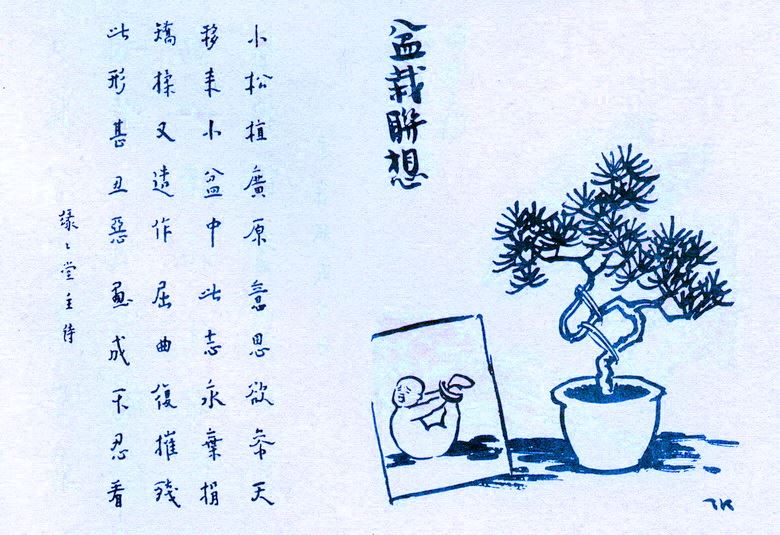 盆栽聯想
小松植廣原 意思欲參天
移来小盆中 此志永棄捐
矯揉又造作 屈曲復摧殘
此形甚丑惡 畫成不忍看
緣々堂主詩
TK